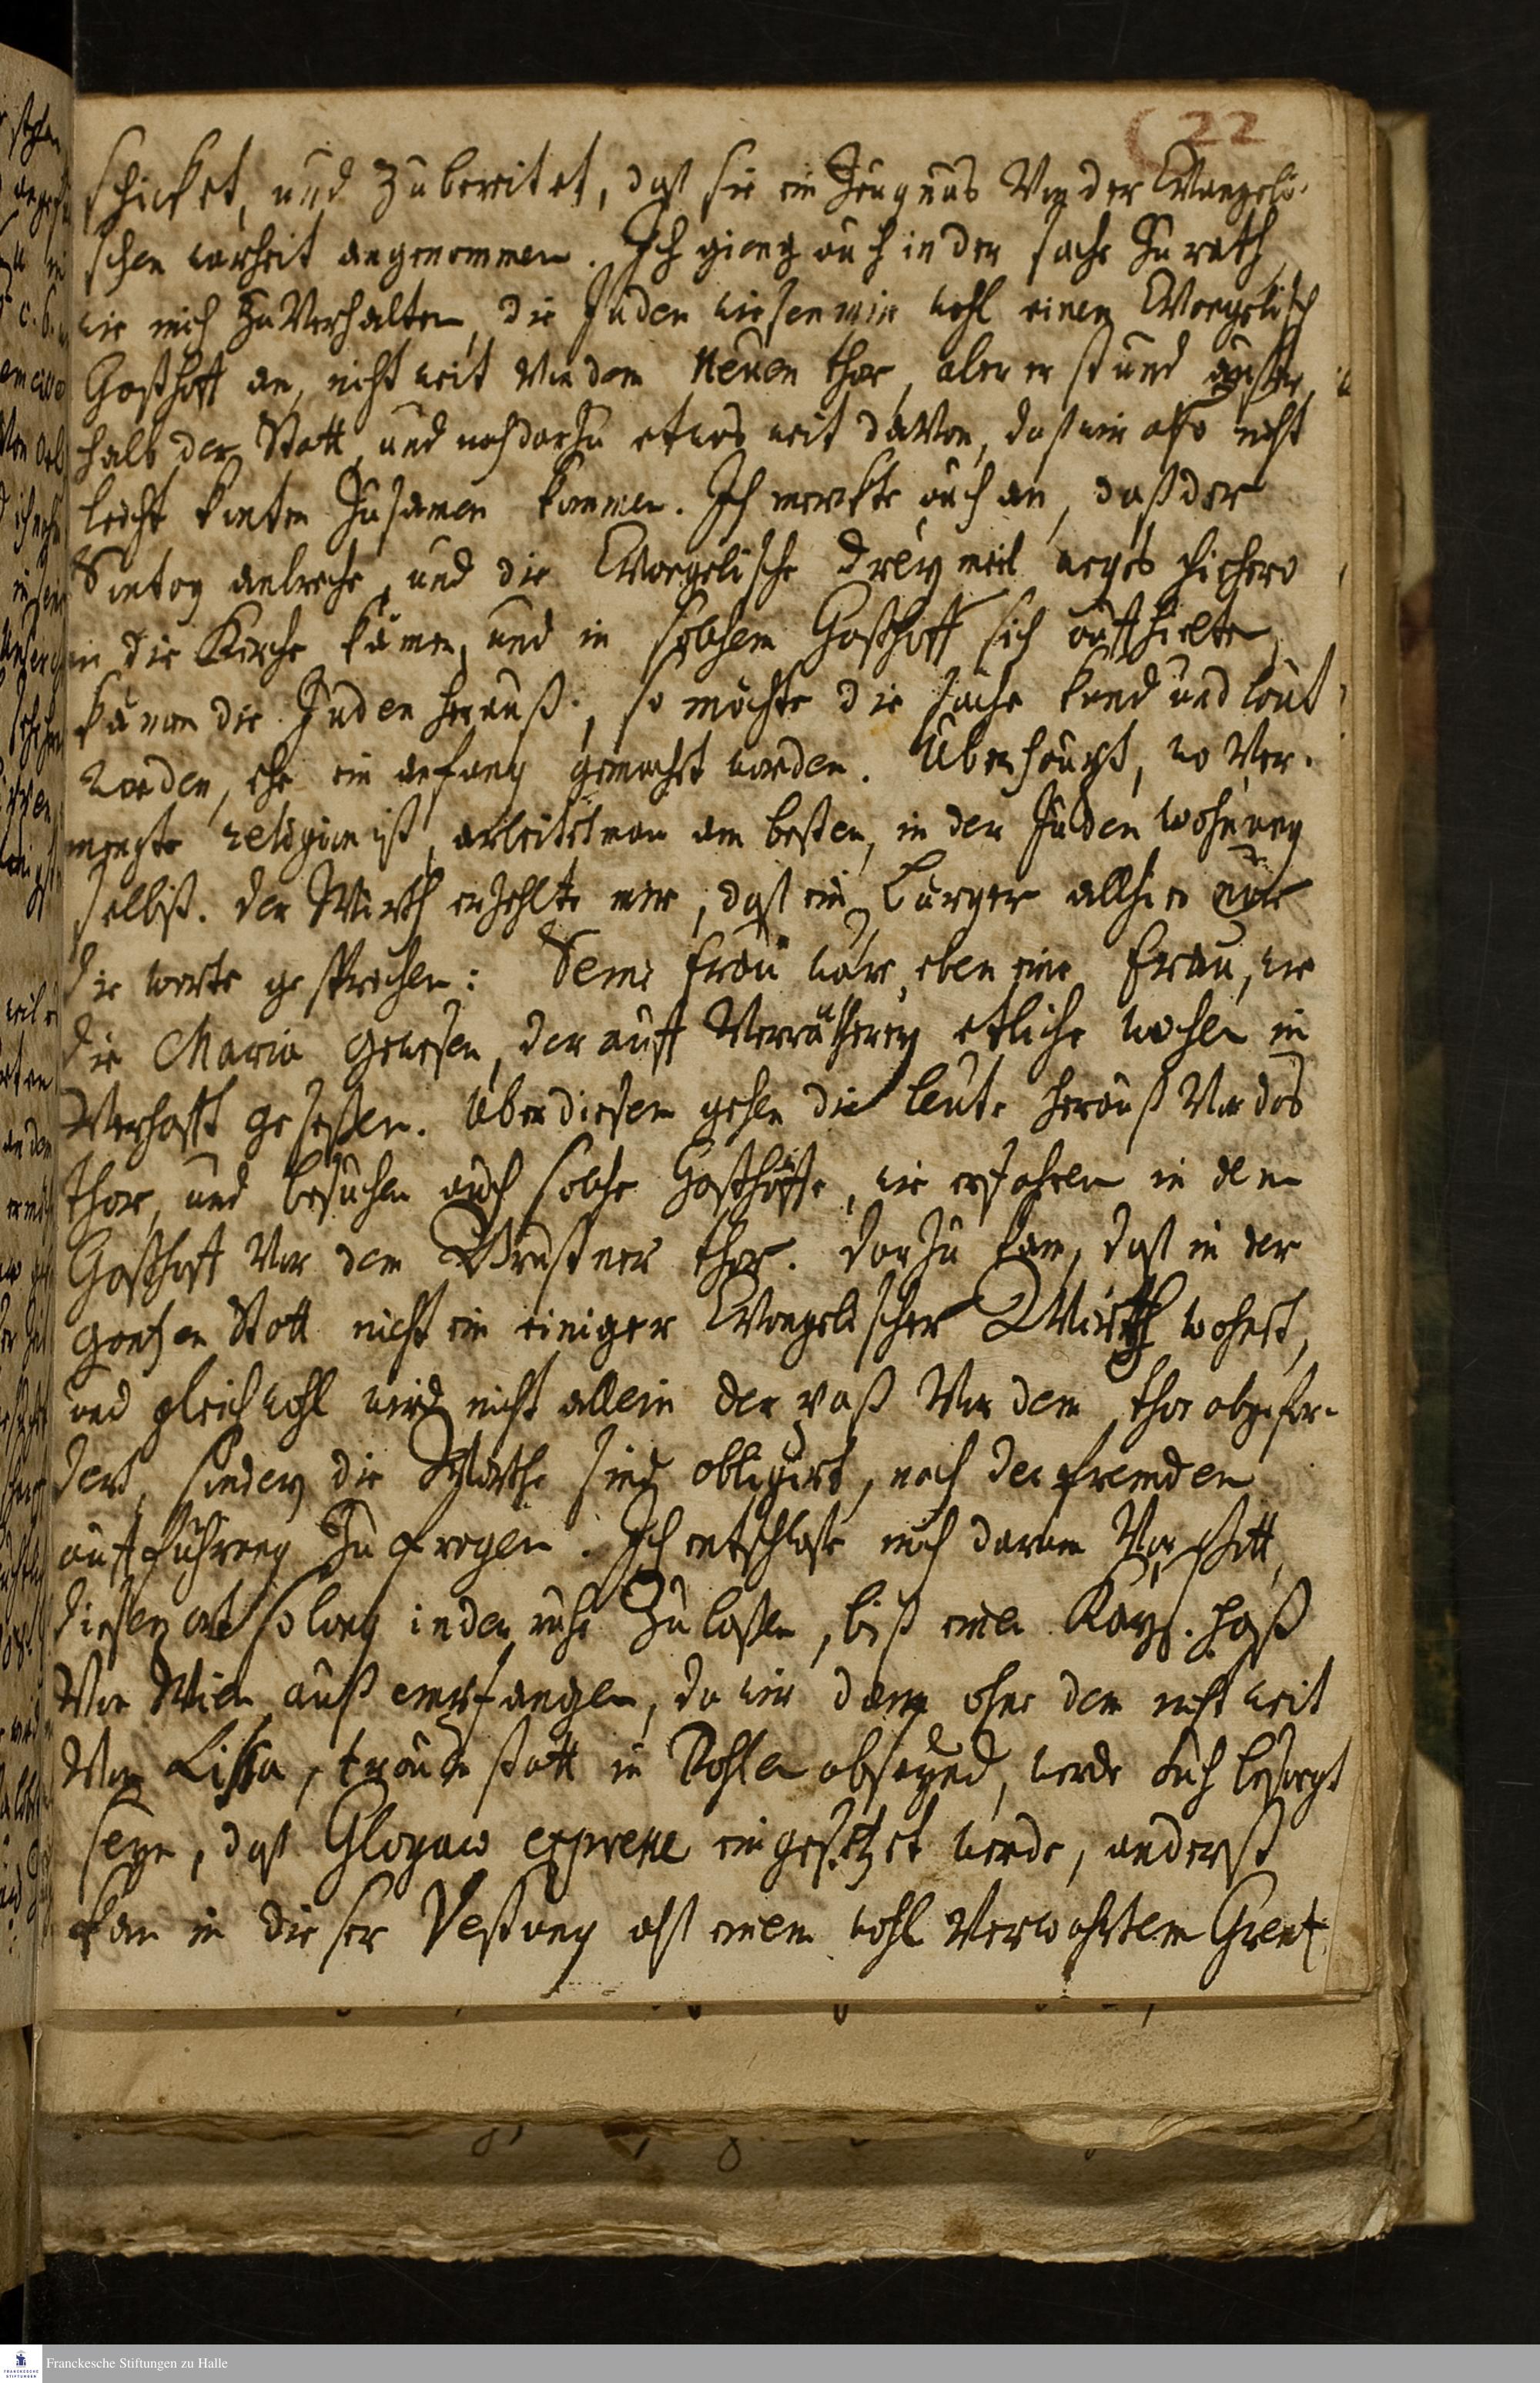 22
schicket, und zubereitet, daß sie ein Zeugnus Von der Evangeli-
schen warheit angenommen. Ich gieng auch in der sache zu rath
wie mich zu Verhalten, die Juden wiesen mir wohl einen Evangelisch
Gasthoff an, nicht weit Von dem Neuen thor, aber er stund außer-
halb der Statt, und noch darzu etwas weit davon, daß wir also nicht
leicht konten zusamen kommen. Ich merckte auch an, daß der
Sontag anbreche, und die Evangelische drey meil wegs hiehero
in die Kirche kämen, und in solchem Gasthoff sich auffhielten,
kämen die Juden herauß, so möchte die sache kund und laut
werden, ehe ein anfang gemacht worden. Überhaupt, wo Ver-
mengte religion ist, arbeitet man am besten, in der Juden wohnung
selbst. Der Wirth erzehlte mir, daß ein burger allhier nur
die worte gesprochen: Seine frau wäre eben eine frau, wie
die Maria gewesen, der auff Verrätherey etliche wochen in
Verhafft geseßen. Über diesem gehen die leute herauß Vor das
thor, und besuchen auch solche Gasthöffe, wie erfahren in dem
Gasthoff Vor dem thor. Darzu kam, daß in der
gantzen Statt nicht ein einiger Evangelischer Wirth wohnet,
und gleichwohl wird nicht allein der paß Vor dem thor abgefor-
dert, sondern die Wirthe sind obligirt, nach der fremden
auffführung zu fragen. Ich entschloße mich darum Vor Gott,
diesen ort so lang in der ruhe zu laßen, biß einen Kayß. paß
Von Wien auß empfangen, da wir dann ohne dem nicht weit
Von Lissa, fraustatt in Pohlen abseynd, werde auch besorgt
seyn, daß Glogaw expresse eingesetzet werde, anderst
kan in dieser Vestung als einem wohl Verwahrtem Grentz
Franckesche Stiftungen zu Halle